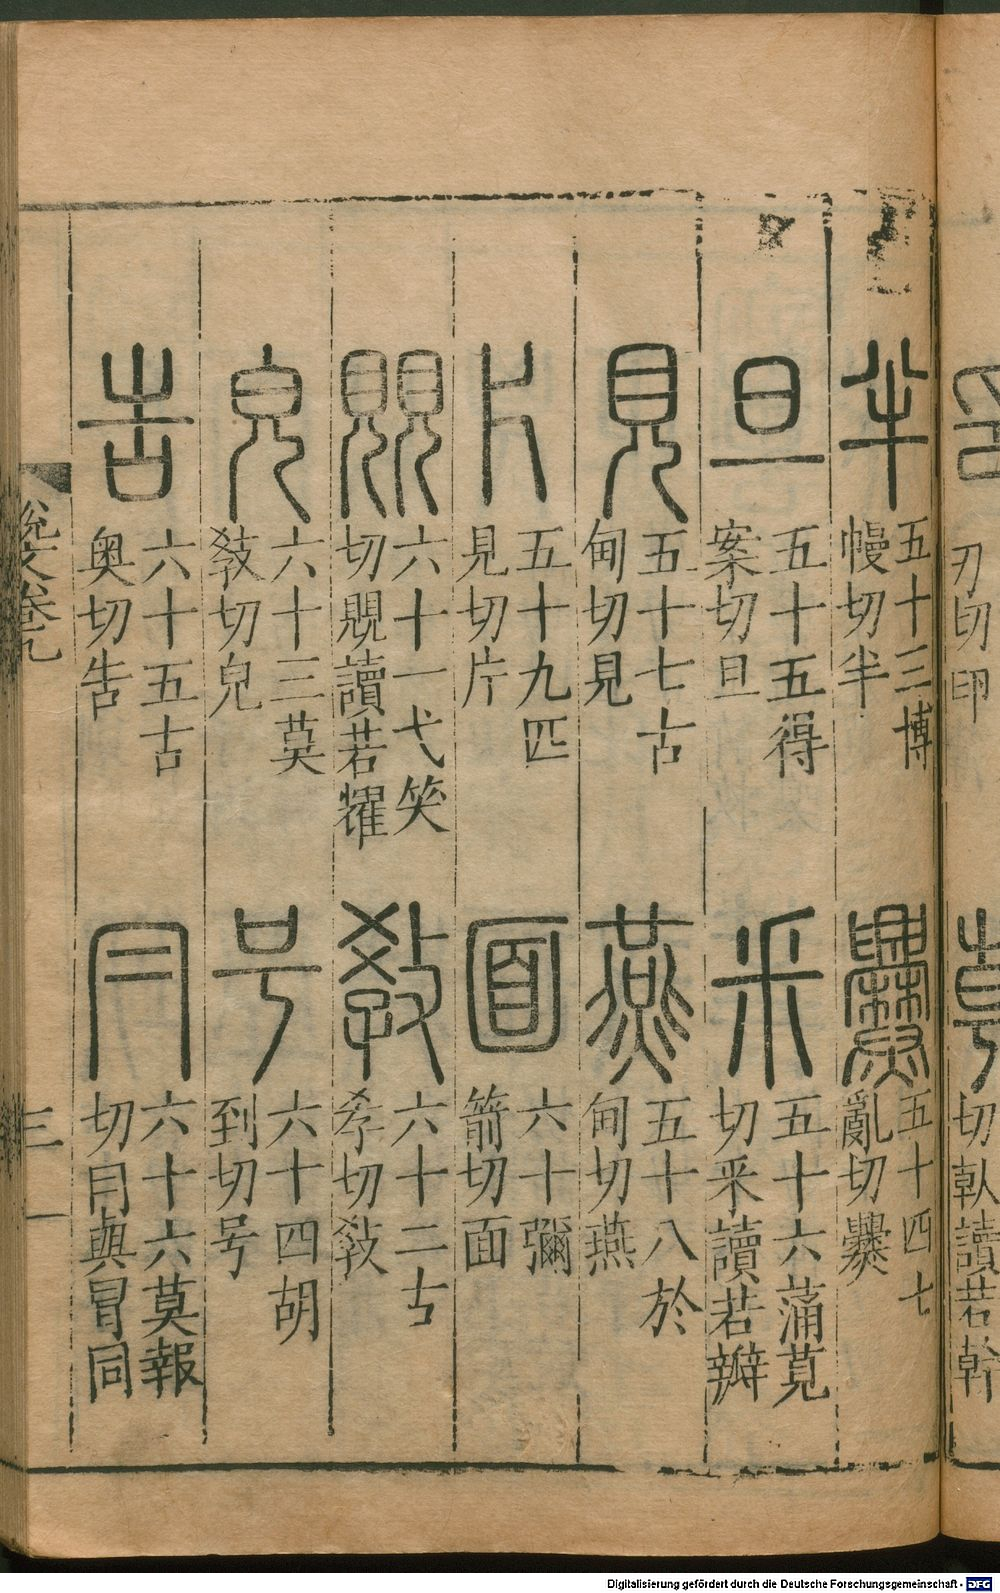 刃切印
切倝讀若幹
半
五十三博
幔切半
爨
五十四七
亂切爨
旦
五十五得
案切旦
釆
五十六蒲莧
切釆讀若辧
見
五十七古
甸切見
燕
五十八於
甸切燕
片
五十九匹
見切片
面
六十彌
箭切面
覞
六十一弋笑
切覞讀若耀
敎
六十二古
孝切敎
皃
六十三莫
敎切皃
号
六十四胡
到切号
告
六十五古
奥切告
冃
六十六莫報
切冃與冒同
說文卷九
三
Digitalisierung gefördert durch die Deutsche Forschungsgemeinschaft - DFG